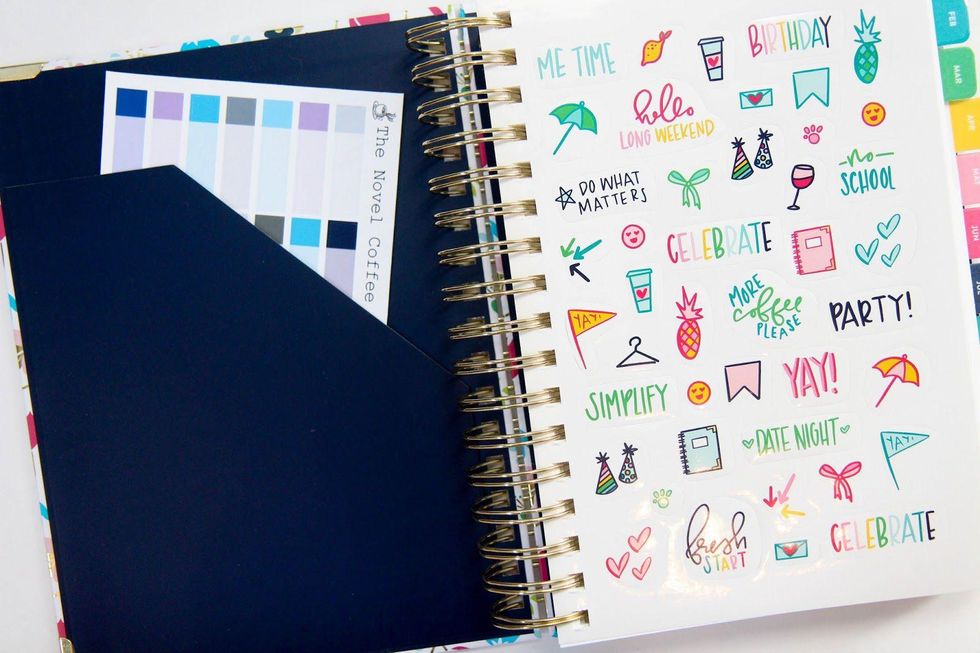 The Novel Coffee
ME TIME
BIRTHDAY
hello
LONG WEEKEND
DO WHAT
MATTERS
-no-
SCHOOL
CELEBRATE
MORE
coffee
PLEASE
YAY!
PARTY!
SIMPLIFY
YAY!
DATE NIGHT
YAY!
fresh
START
CELEBRATE
FEB
MAR
APR
MAY
JUN